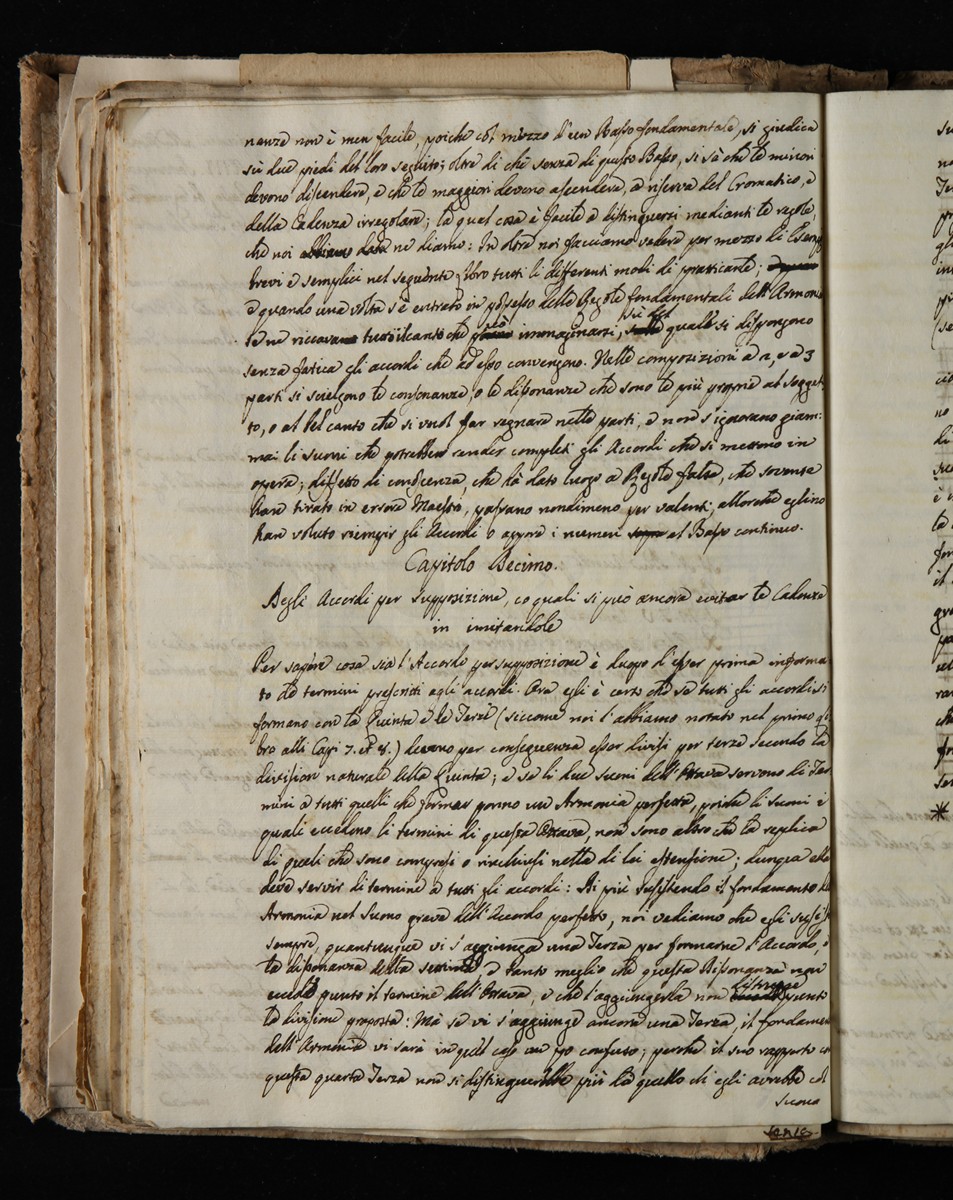 nanze non è men facile, poiche col mezzo d'un Basso fondamentale, si giudica
sù due piedi del loro seguito; oltre di chè senza di questo Basso, si sà che le minori
devono discendere, e chè le maggiori devono ascendere, a riserva del Cromatico, e
della Cadenza irregolare; la qual cosa è facile a distinguersi medianti le regole,
che noi abbiamo date ne diamo: In oltre noi facciamo vedere per mezzo di Esempj
brevi e semplici nel seguente Libro tutti li differenti modi di pratticarle;
e quando una volta s'è entrato in possesso delle Regole fondamentali dell'Armonia
se ne ricava tutto il canto che può immaginarsi, sul qual si dispongono
senza fatica gli accordi che ad esso convengono. Nelle composizioni a 2, e a 3
parti si sciegono le consonanze, o le dissonanze che sono le più proprie al sogget
to, o al bel canto che si vuol far regnare nelle parti, e non s'ignorano giam:
mai li suoni che potrebbero render completi gli Accordi che si mettono in
opera; diffetto di conoscenza, che dà dato luogo a Regole false, che sovente
han tirato in errore Maestri, passano nondimeno per valenti, allorche eglino
han voluto riempir gli Accordi o appore i numeri sopra al Basso continuo.
Capitolo Decimo.
Degli Accordi per supposizione, co quali si può ancora evitar le Cadenze
in imitandole
Per sapere cosa sia l'Accordo per supposizione è duopo d'esser prima informa
to de termini prescritti agli accordi. Ora egli è certo che se tutti gli accordi si
formano con la Quinta e le Terze (siccome noi l'abbiamo notato nel primo li
bro alli Capi 7. et 8.) devano per conseguenza esser divisi per terze secondo la
division naturale della Quinta; e se li due suoni dell'Ottava servono di Ter
mini a tutti quelli che formar ponno un Armonia perfetta, poiche li suoni i
quali eccedono li termini di questa Ottava, non sono altro che la replica
di queli che sono compresi o rinchiusi nella di lei estensione; dunque ella
deve servir di termine a tutti gli accordi: Di più sussistendo il fondamento dell
Armonia nel suono grave dell'Accordo perfetto, noi vediamo che egli sussiste
sempre, quantunque vi s'aggiunga una Terza per formarne l'Accordo, o
la dissonanza della settima, e tanto meglio chè questa Dissonanza non
eccede punto il termine dell'Ottava, e chè l'aggiungerla non distrugge punto
la divisione proposta: Mà se vi s'aggiunge ancora una Terza, il fondamen
dell'Armonia vi sarà in quel caso un pò confuso; perche il suo rapporto con
questa quarta Terza non si distinguerebbe più da quello ch'egli avrebbe col
Suono